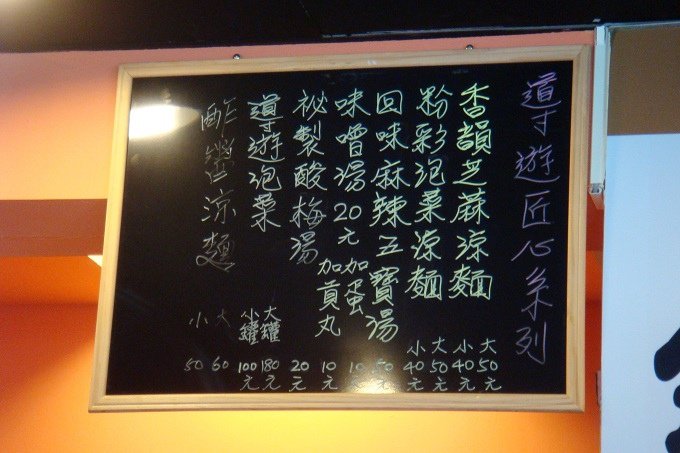 導遊匠心系列
香韻芝蔴涼麵 大50元 小40元
粉彩泡菜涼麵 大50元 小40元
回味麻辣五寶湯 50元
味噌湯20元 加蛋10元
加貢丸10元
祕製酸梅湯 20元
導遊泡菜 大罐180元 小罐100元
酢醬涼麵 大60 小50